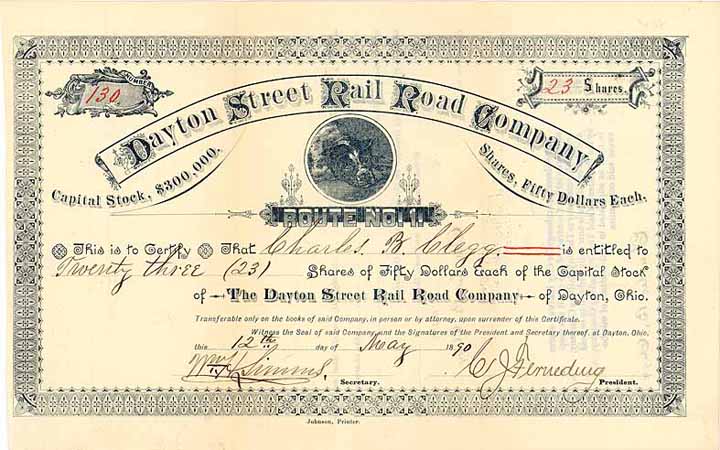 NUMBER
130.
23 Shares.
Dayton Street Rail Road Company
Capital Stock, $300,000.
Shares, Fifty Dollars Each.
ROUTE NO. 1.
This is to Certify That Charles B. Clegg is entitled to
Twenty three (23) Shares of Fifty Dollars Each of the Capital Stock
of The Dayton Street Rail Road Company of Dayton, Ohio.
Transferable only on the books of said Company, in person or by attorney, upon surrender of this Certificate.
Witness the Seal of said Company and the Signatures of the President and Secretary thereof, at Dayton, Ohio,
this 12th day of May 1890
Simms. C J Ferneding
Secretary. President.
Johnson, Printer.